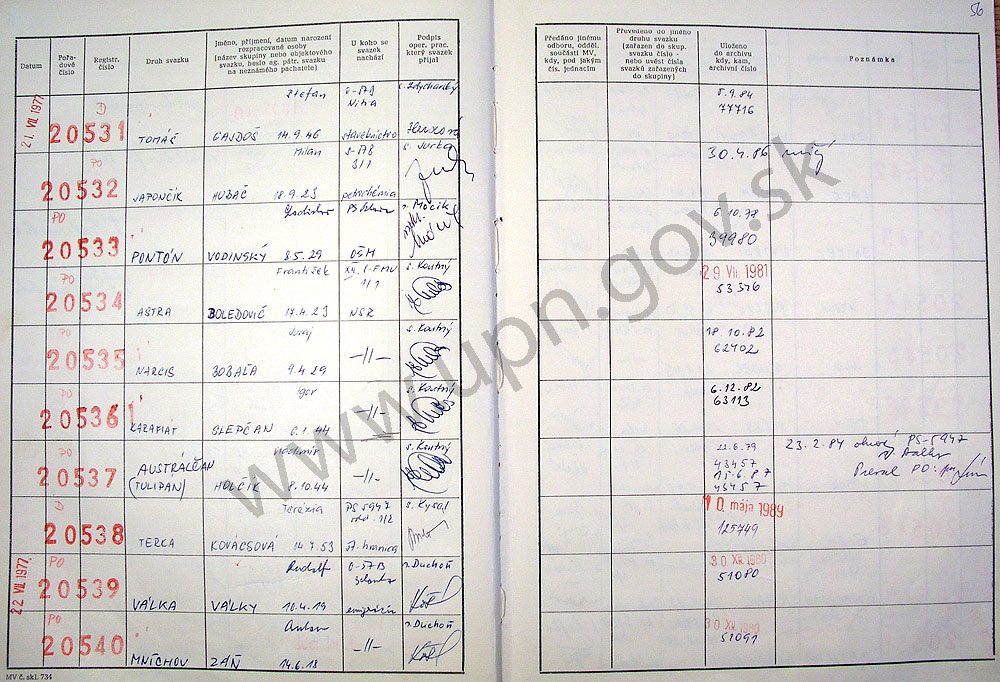 56
Datum
Pořa-
dové
číslo
Registr.
číslo
Druh svazku
Jméno, příjmení, datum narození
rozpracované osoby
(název skupiny nebo objektového
svazku, heslo ag. pátr. svazku
na neznámého pachatele)
U koho se
svazek
nachází
Podpis
oper. prac.
který svazek
přijal
Předáno jinému
odboru, odděl.
součásti MV,
kdy, pod jakým
čís. jednacím
Převedeno do jiného
druhu svazku
(zařazen do skup.
svazku číslo -
nebo uvést čísla
svazků zařazených
do skupiny)
Uloženo
do archivu
kdy, kam,
archivní číslo
Poznámka
21. VII. 1977
D
20531
TOMÁŠ
Štefan
GAJDOŠ 14.9.46
Nitra
stavebnictvo
5.9.84
77716
PO
20532
JAPONČÍK
Milan
HUBAČ 18.9.23
petrochémia
s. Jurka
30.4.86
PO
20533
PONTÓN
Ladislav
VODINSKÝ 8.5.29
OŠM
s. Močik
6.10.78
39980
PO
20534
ASTRA
František
BOLEDOVIČ 17.4.23
XII. S-FMV
1/1
NSR
s. Koutný
29. VII. 1981
53376
PO
20535
NARCIS
Juraj
BOBAĽA 9.4.29
-//-
s. Koutný
18 10.82
62402
PO
20536
KARAFIAT
Igor
SLEPČAN 6.1.44
-//-
s. Koutný
6.12.82
63113
PO
20537
AUSTRÁLČAN
(TULIPAN)
Vladimír
HOLČÍK 8.10.44
-//-
s. Koutný
22.6.79
43457
15.6.87
43457
23.2.84 PS-5947
20538
D
TERKA
Terézia
KOVÁCSOVÁ 14.7.53
PS 5947
odd. 1/2
št. hranica
s. Kysel
10. mája 1989
125749
22. VII. 1977
PO
20539
VÁLKA
Rudolf
VÁLKY 10.4.19
Galanta
emigrácia
s. Duchoň
30. XII. 1980
51080
PO
20540
MNÍCHOV
Anton
ZÁŇ 14.6.18
-//-
s. Duchoň
30. XII. 1980
51091
MV č. skl. 734
www.upn.gov.sk